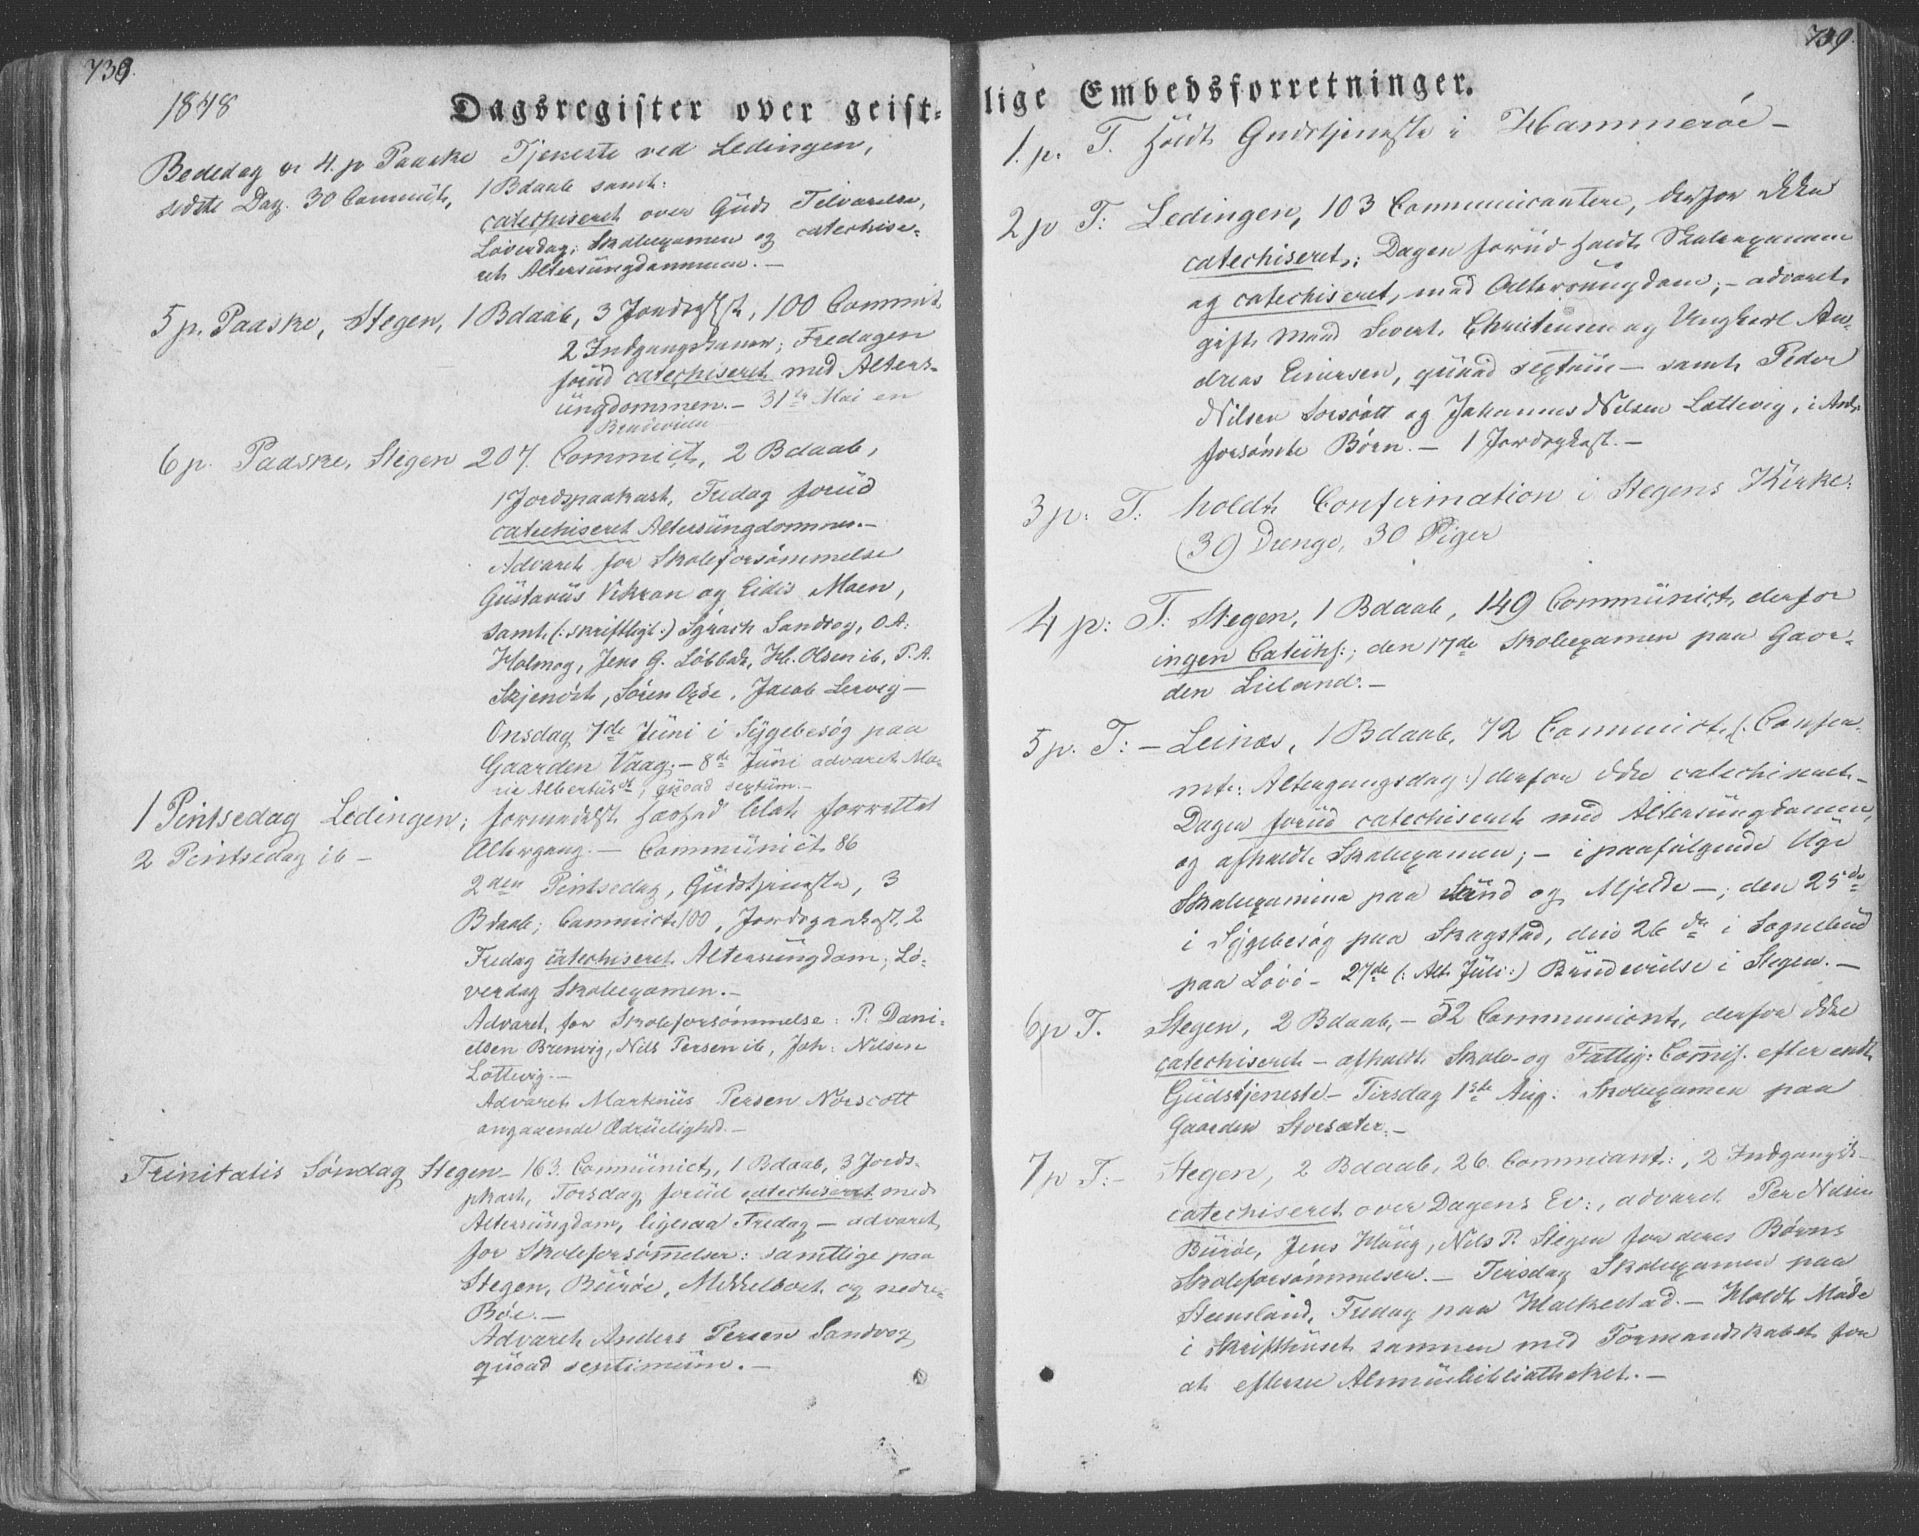 738.
1848
Dagsregister over geist-
Bededag er 4. p Paaske Tjeneste ved Ledingen,
sidste Dag. 30 Communit., 1 Bdaab samt:
catechiseret over Guds Tilværelse,
Løverdag: Skoleexamen og catechise-
ret Altersungdommen. —
5 p. Paaske, Stegen, 1 Bdaab, 3 Jordspkst, 100 Commit
2 Indgangskoner; Fredagen
forud catechiseret med Alters-
ungdommen. — 31te Mai en
Brudevielse
6 p. Paaske, Stegen 207. Commict, 2 Bdaab,
1 Jordspaakast, Fredag forud
catechiseret Altersungdommen. —
Advaret for Skoleforsømmelse
Gustavus Vikran og Eidis Moen,
samt (: skriftligt :) Sørach Sandvog, O A:
Holmog, Jens G. Løbbak, H. Olsen ib, P. A.
Skjenøst, Søren Oxøe, Jacob Lervig —
Onsdag 7de Juni i Sygebesøg paa
Gaarden Vaag. — 8de Juni advaret Ma-
rie Albertusdt, quoad sextum. —
1 Pintsedag Ledingen; formedelst Hæshed blot forrettet
2 Pintsedag ib — Altergang. — Communict 86
2den Pintsedag, Gudstjeneste, 3
Bdaab; Commict. 100, Jordspaakast. 2
Fredag catechiseret Altersungdom, Lø-
verdag Skoleexamen. —
Advaret for Skoleforsømmelse: P. Dani-
elsen Brenvig, Nils Persen ib, Joh: Nilsen
Lottevig. —
Advaret Markus Persen Norscott
angaaende Ædruelighed. —
Trinitatis Søndag Stegen — 163. Communict, 1 Bdaab, 3 Jords-
pkast, Torsdag forud catechiseret med
Altersungdom, ligesaa Fredag — advaret
for Skoleforsømmelser: samtlige paa
Stegen, Burøe, Mikkelbost og nedre
Bøe. —
Advaret Anders Persen Sandvog
quoad septimum. —
739.
lige Embedsforretninger.
1. p. T. Holdt Gudstjeneste i Hammerøe —
2 p T: Ledingen, 103 Communicantere, derfor ikke
catechiseret; Dagen forud holdt Skoleexamen
og catechiseret, med Altersungdom; — advaret
gift Mand Sivert Christensen og Ungkarl An-
dreas Einersen, quoad sextum — samt Peder
Nilsen Sorscott og Johannes Nilsen Lottevig, i
forsømte Børn. — 1 Jordspkast. —
3 p: T: holdt Confirmation i Stegens Kirke:
(39 Drenge, 30 Piger
4 p: T: Stegen, 1 Bdaab, 149 Communict, derfor
ingen Catechs:; den 17de Skoleexamen paa Gaar-
den Lieland. —
5 p. T: — Leinæs, 1 Bdaab, 72 Commict. (: Confir-
mt: Altergangsdag :) derfor ikke catechiseret —
Dagen forud catechiseret med Altersungdommen,
og afholdt Skoleexamen; — i paafølgende Uge
Skoleexamina paa Sund og Mjelde —; den 25de
i Sygebesøg paa Skagstad, den 26de i Sognebud
paa Løvø — 27de (: Alt Juli :) Brudevielse i Stegen. —
6 p T. Stegen, 2 Bdaab, — 52 Communicant, derfor ikke
catechiseret — afholdt Skole- og Fattig: Comis. efter endt
Gudstjeneste — Tirsdag 1ste Aug: Skoleexamen paa
Gaarden Storsæter. —
7 p T: — Stegen, 2 Bdaab, 26 Commicant:, 2 Indgangsk —
catechiseret over Dagens Ev:, advaret Per Nilsen
Burøe, Jens Houg, Nils P. Stegen for deres Børns
Skoleforsømmelser. — Tirsdag Skoleexamen paa
Stensland, Fredag paa Halkestad. — Holdt Møde
i Skrifthuset sammen med Formandskabet for
at efterse Almuebibliotheket. —